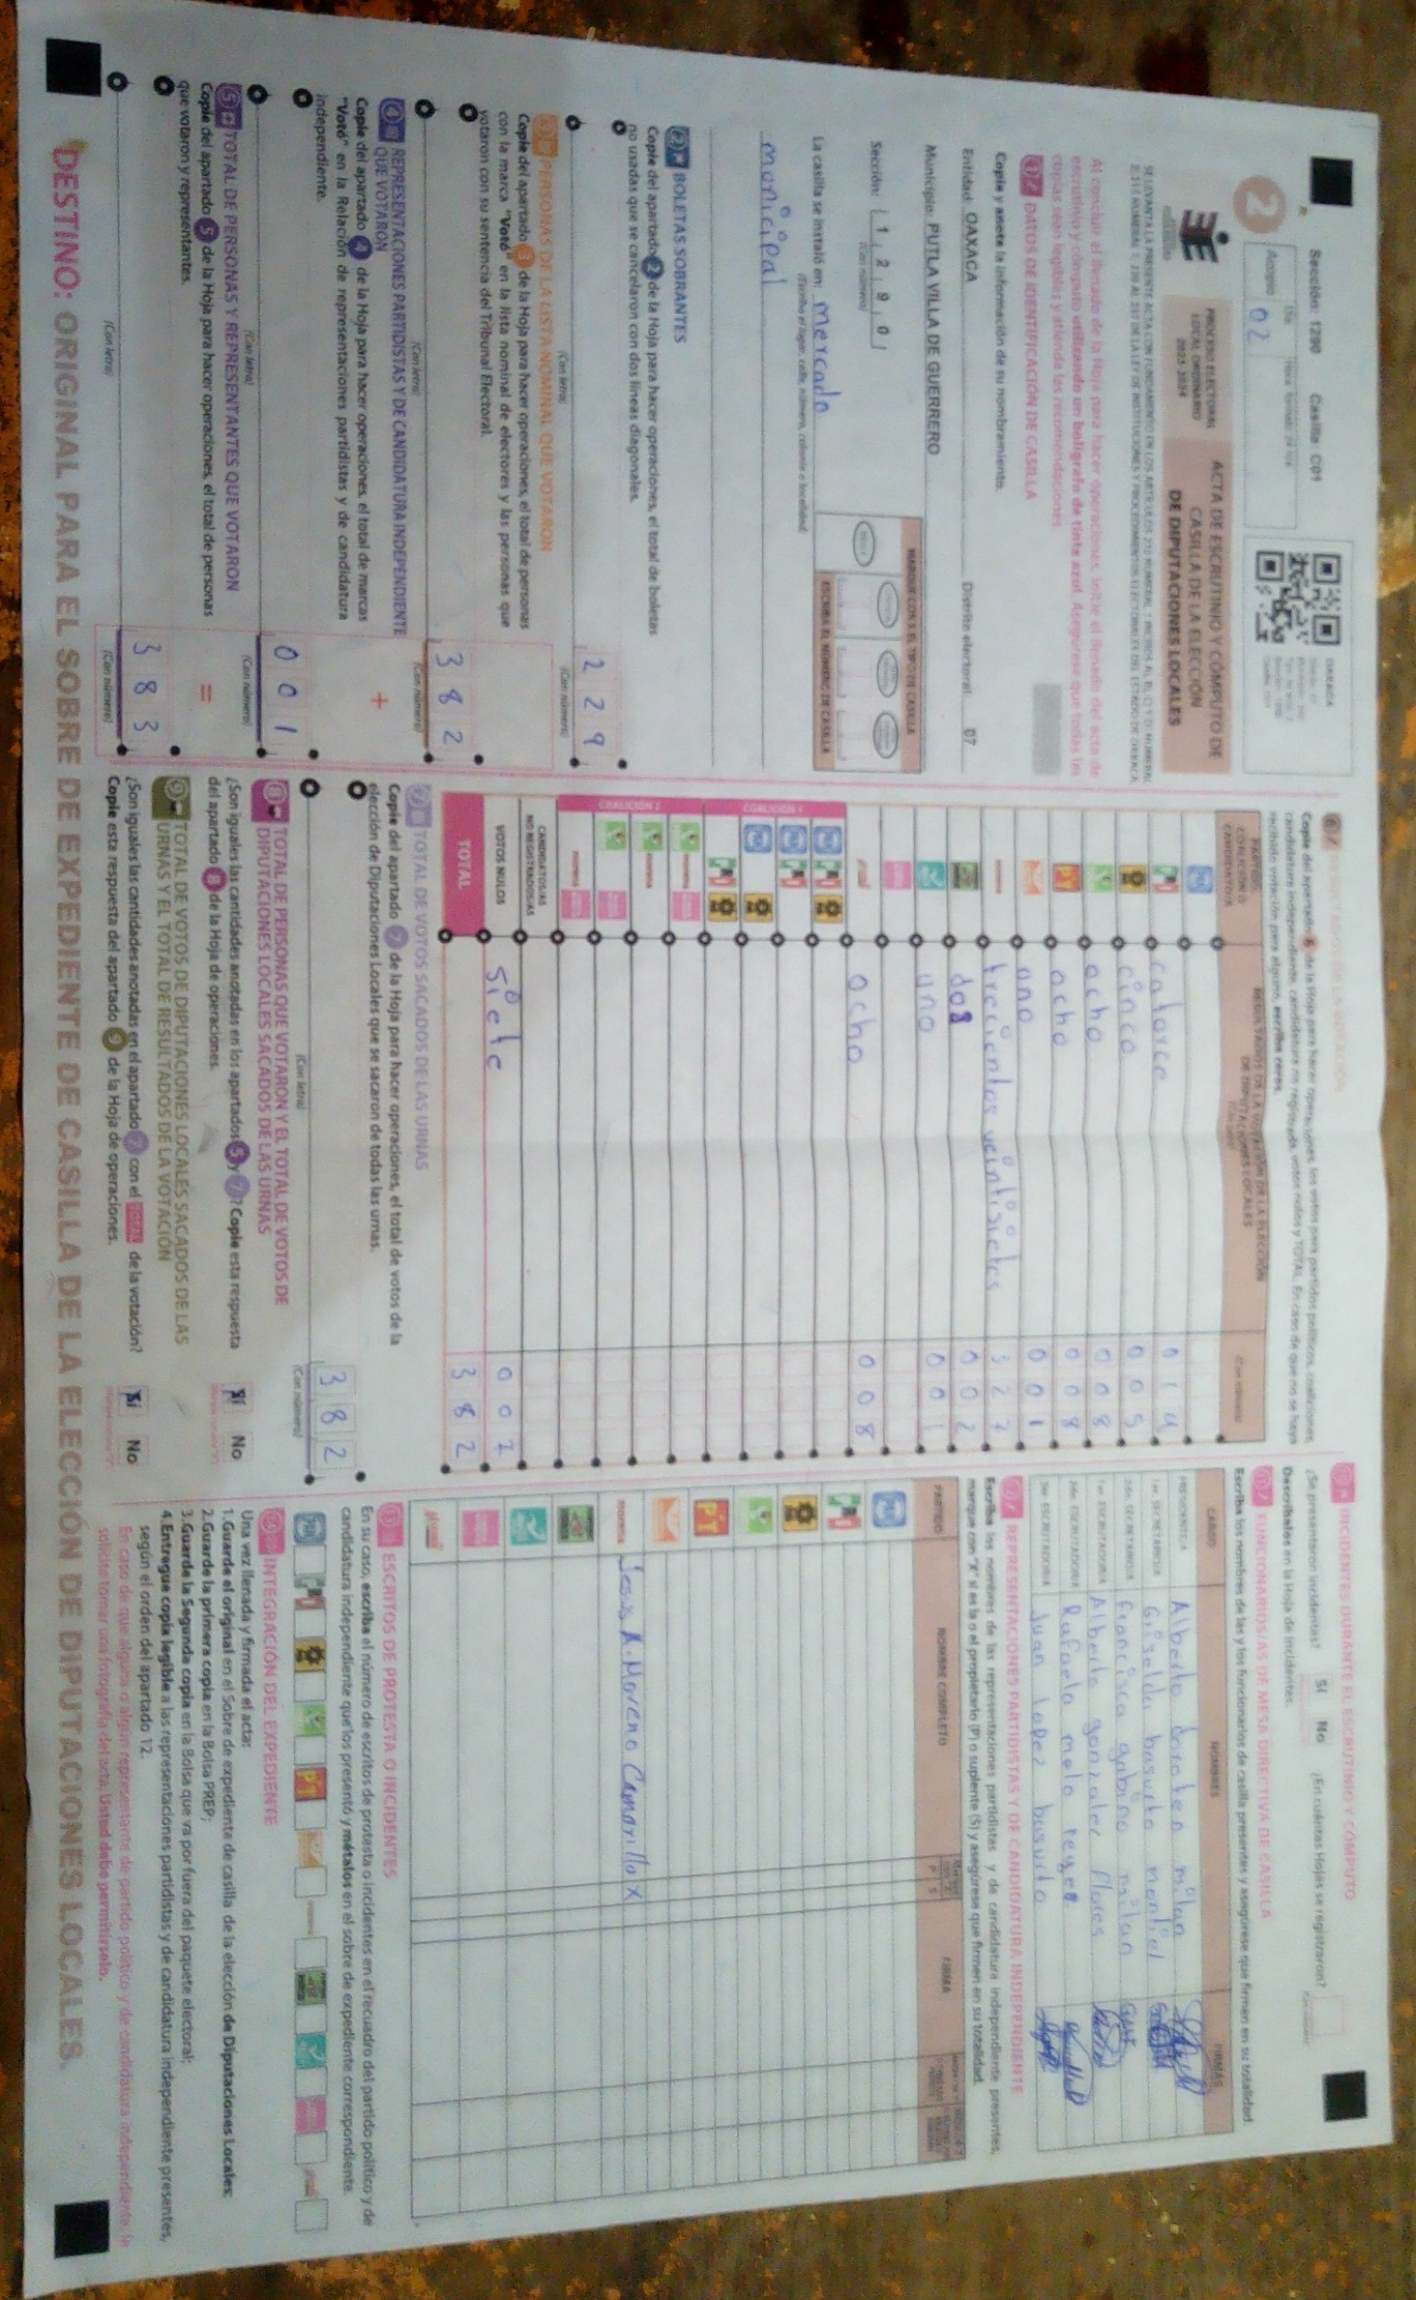 Sección: 1290 Casilla: C01
2
Acopio 02
OAXACA
PROCESO ELECTORAL
LOCAL ORDINARIO
2023-2024
ACTA DE ESCRUTINIO Y CÓMPUTO DE
CASILLA DE LA ELECCIÓN
DE DIPUTACIONES LOCALES
Al concluir el llenado de la Hoja para hacer operaciones, inicie el llenado del acta de
escrutinio y cómputo utilizando un bolígrafo de tinta azul. Asegúrese que todas las
copias sean legibles y atienda las recomendaciones.
1 DATOS DE IDENTIFICACIÓN DE CASILLA
Copie y anote la información de su nombramiento.
Entidad: OAXACA Distrito electoral: 07
Municipio: PUTLA VILLA DE GUERRERO
Sección: 1 2 9 0
(Con número)
MARQUE CON X EL TIPO DE CASILLA
ESCRIBA EL NÚMERO DE CASILLA
La casilla se instaló en: mercado
(Escriba el lugar, calle, número, colonia o localidad)
municipal
2 BOLETAS SOBRANTES
Copie del apartado 2 de la Hoja para hacer operaciones, el total de boletas
no usadas que se cancelaron con dos líneas diagonales.
2 2 9
(Con letra) (Con número)
3 PERSONAS DE LA LISTA NOMINAL QUE VOTARON
Copie del apartado 3 de la Hoja para hacer operaciones, el total de personas
con la marca "Votó" en la lista nominal de electores y las personas que
votaron con su sentencia del Tribunal Electoral.
3 8 2
(Con letra) (Con número)
4 REPRESENTACIONES PARTIDISTAS Y DE CANDIDATURA INDEPENDIENTE
QUE VOTARON
+
Copie del apartado 4 de la Hoja para hacer operaciones, el total de marcas
"Votó" en la Relación de representaciones partidistas y de candidatura
independiente.
0 0 1
(Con letra) (Con número)
5 TOTAL DE PERSONAS Y REPRESENTANTES QUE VOTARON
=
Copie del apartado 5 de la Hoja para hacer operaciones, el total de personas
que votaron y representantes.
3 8 3
(Con letra) (Con número)
6
Copie del apartado 6 de la Hoja para hacer operaciones, los votos para partidos políticos, coaliciones,
candidatura independiente, candidatura no registrada, votos nulos y TOTAL. En caso de que no se haya
recibido votación para alguno, escriba ceros.
PARTIDO, COALICIÓN O CANDIDATO/A
RESULTADOS DE LA VOTACIÓN DE LA ELECCIÓN
DE DIPUTACIONES LOCALES
(Con número)
catorce 0 1 4
cinco 0 0 5
ocho 0 0 8
PT ocho 0 0 8
uno 0 0 1
morena trecientos veintisietes 3 2 7
dos 0 0 2
uno 0 0 1
ocho 0 0 8
COALICIÓN 1
COALICIÓN 2
CANDIDATOS/AS
NO REGISTRADOS/AS
VOTOS NULOS siete 0 0 7
TOTAL 3 8 2
7 TOTAL DE VOTOS SACADOS DE LAS URNAS
Copie del apartado 7 de la Hoja para hacer operaciones, el total de votos de la
elección de Diputaciones Locales que se sacaron de todas las urnas.
3 8 2
(Con letra) (Con número)
8 TOTAL DE PERSONAS QUE VOTARON Y EL TOTAL DE VOTOS DE
DIPUTACIONES LOCALES SACADOS DE LAS URNAS
¿Son iguales las cantidades anotadas en los apartados 5 y 7? Copie esta respuesta
del apartado 8 de la Hoja de operaciones. Sí No
9 TOTAL DE VOTOS DE DIPUTACIONES LOCALES SACADOS DE LAS
URNAS Y EL TOTAL DE RESULTADOS DE LA VOTACIÓN
¿Son iguales las cantidades anotadas en el apartado 7 con el TOTAL de la votación?
Copie esta respuesta del apartado 9 de la Hoja de operaciones. Sí No
INCIDENTES DURANTE EL ESCRUTINIO Y CÓMPUTO
¿Se presentaron incidentes? Sí No ¿En cuántas Hojas se registraron?
Descríbalos en la Hoja de incidentes.
FUNCIONARIOS/AS DE MESA DIRECTIVA DE CASILLA
Escriba los nombres de las y los funcionarios de casilla presentes y asegúrese que firmen en su totalidad.
CARGO NOMBRES FIRMAS
PRESIDENTE/A Alberto milan
1er. SECRETARIO/A basurto montiel
2do. SECRETARIO/A francisca gabino milan
1er. ESCRUTADOR/A Alberto gonzalez flores
2do. ESCRUTADOR/A Rafaela melo reyes
3er. ESCRUTADOR/A Juan Lopez basurto
REPRESENTACIONES PARTIDISTAS Y DE CANDIDATURA INDEPENDIENTE
Escriba los nombres de las representaciones partidistas y de candidatura independiente presentes,
marque con "X" si es la o el propietario (P) o suplente (S) y asegúrese que firmen en su totalidad.
PARTIDO NOMBRE COMPLETO FIRMA
PT
morena Jesus A. Moreno Camarillo X
ESCRITOS DE PROTESTA O INCIDENTES
En su caso, escriba el número de escritos de protesta o incidentes en el recuadro del partido político y de
candidatura independiente que los presentó y métalos en el sobre de expediente correspondiente.
INTEGRACIÓN DEL EXPEDIENTE
Una vez llenada y firmada el acta:
1.Guarde el original en el Sobre de expediente de casilla de la elección de Diputaciones Locales;
2.Guarde la primera copia en la Bolsa PREP;
3.Guarde la Segunda copia en la Bolsa que va por fuera del paquete electoral;
4.Entregue copia legible a las representaciones partidistas y de candidatura independiente presentes,
según el orden del apartado 12.
En caso de que alguna o algún representante de partido político y de candidatura independiente le
solicite tomar una fotografía del acta. Usted debe permitírselo.
DESTINO: ORIGINAL PARA EL SOBRE DE EXPEDIENTE DE CASILLA DE LA ELECCIÓN DE DIPUTACIONES LOCALES.